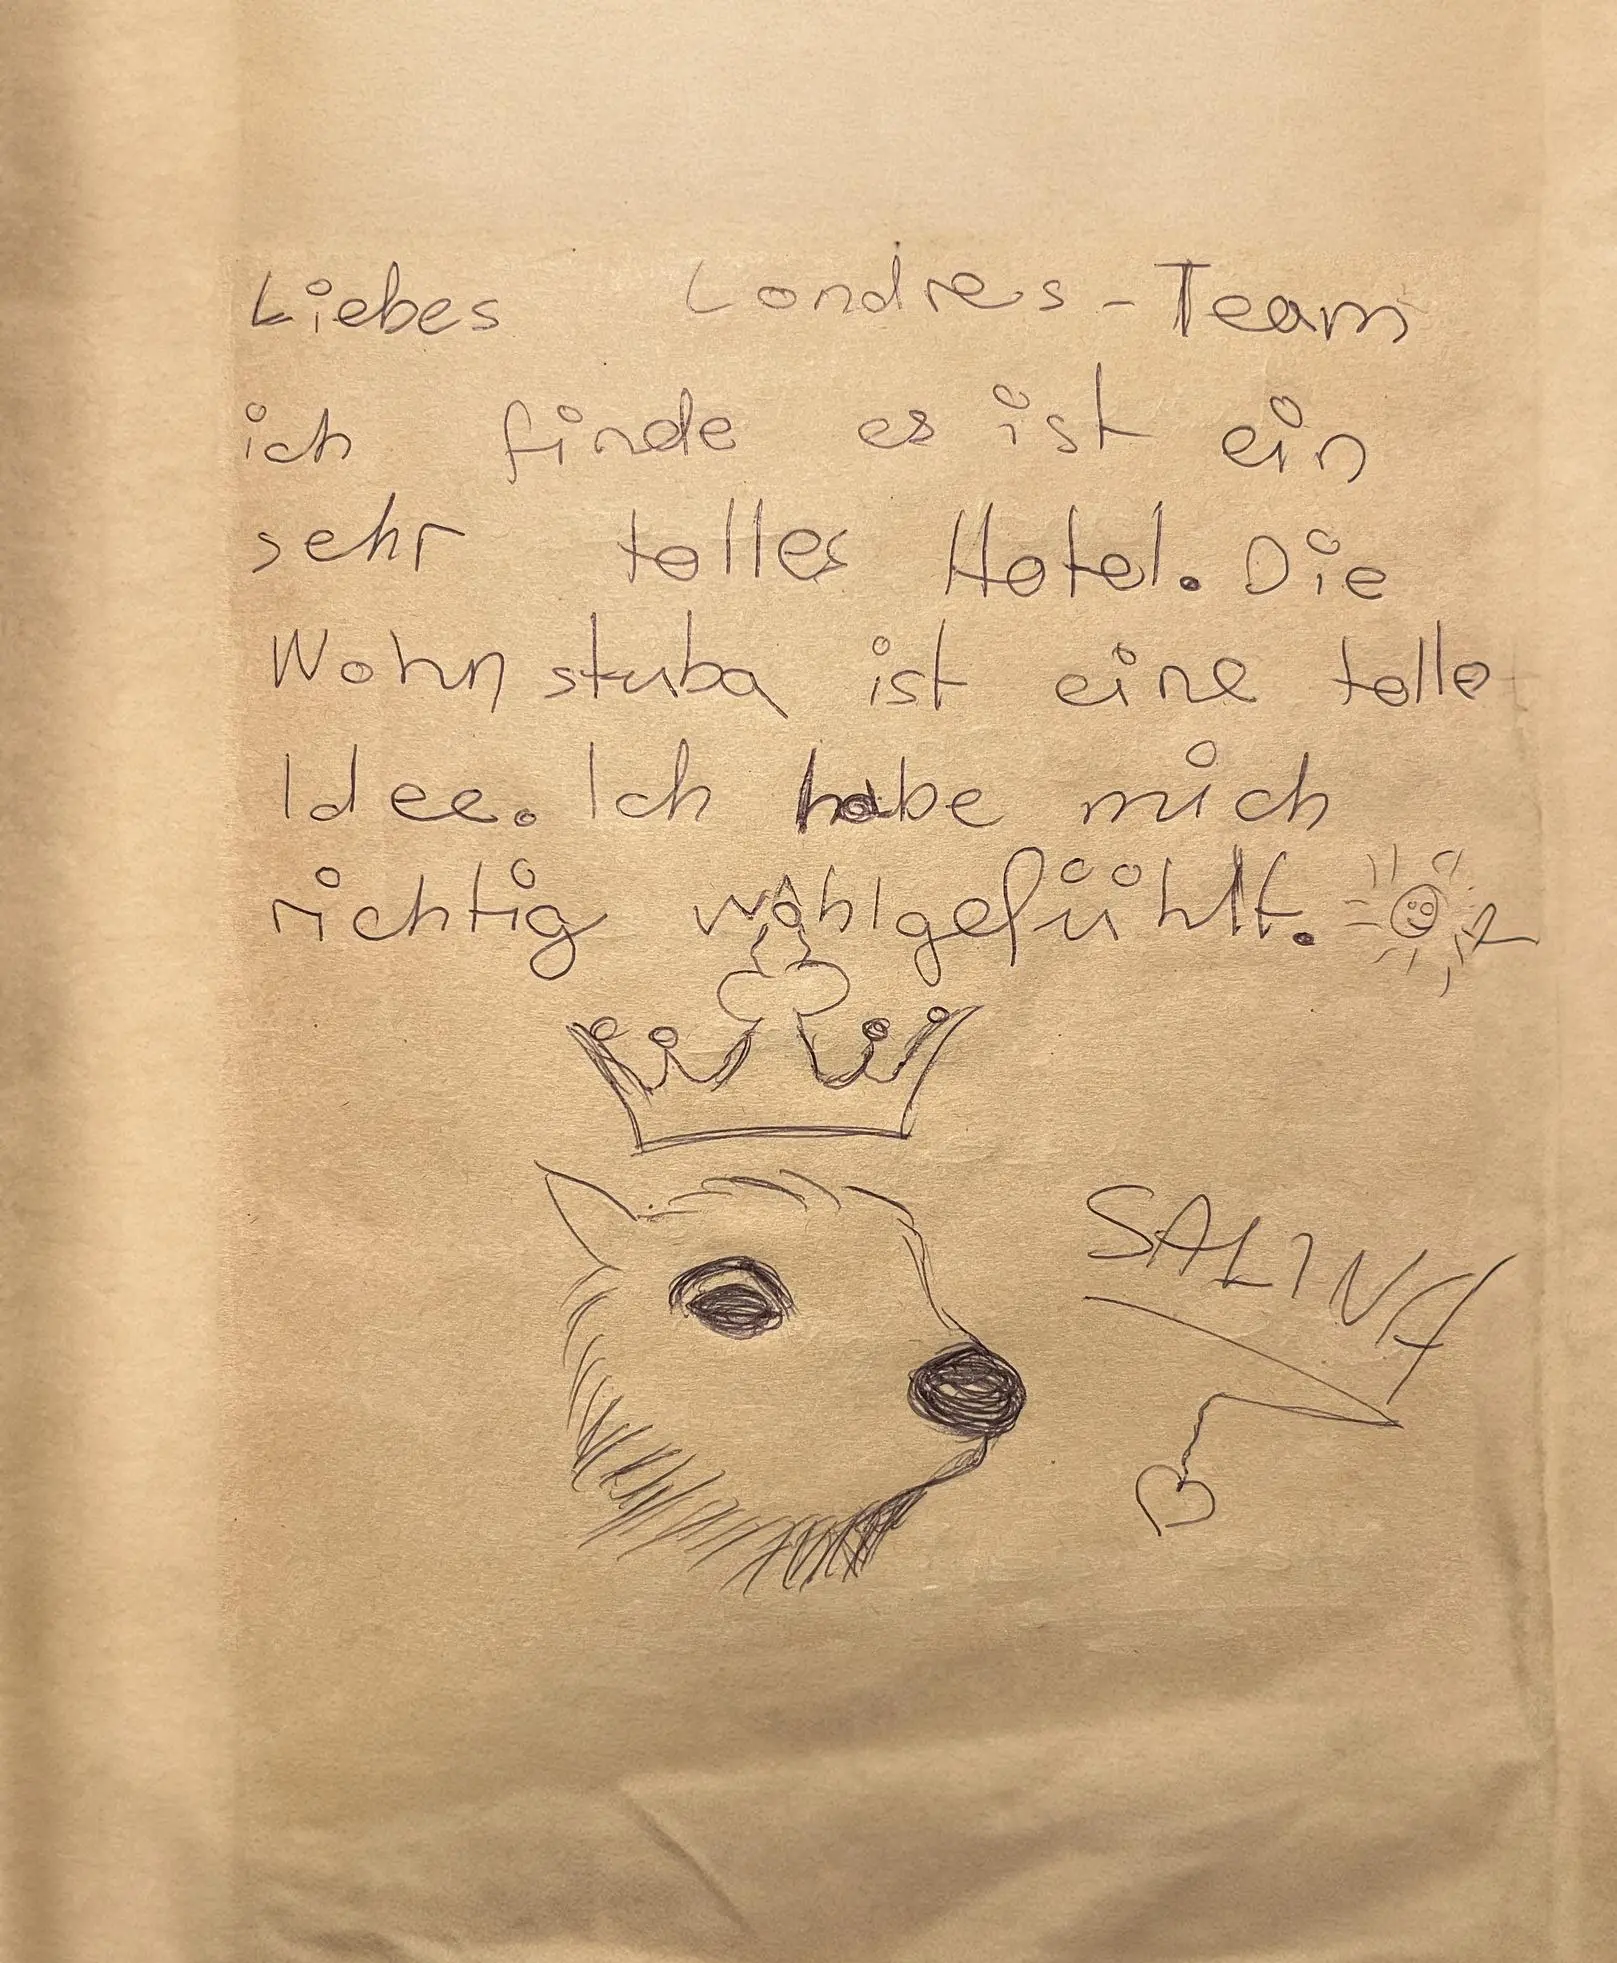 Liebes Londres-Team
ich finde es ist ein
sehr tolles Hotel. Die
Wohnstuba ist eine tolle
Idee. Ich habe mich
richtig wohlgefühlt.
SALINA